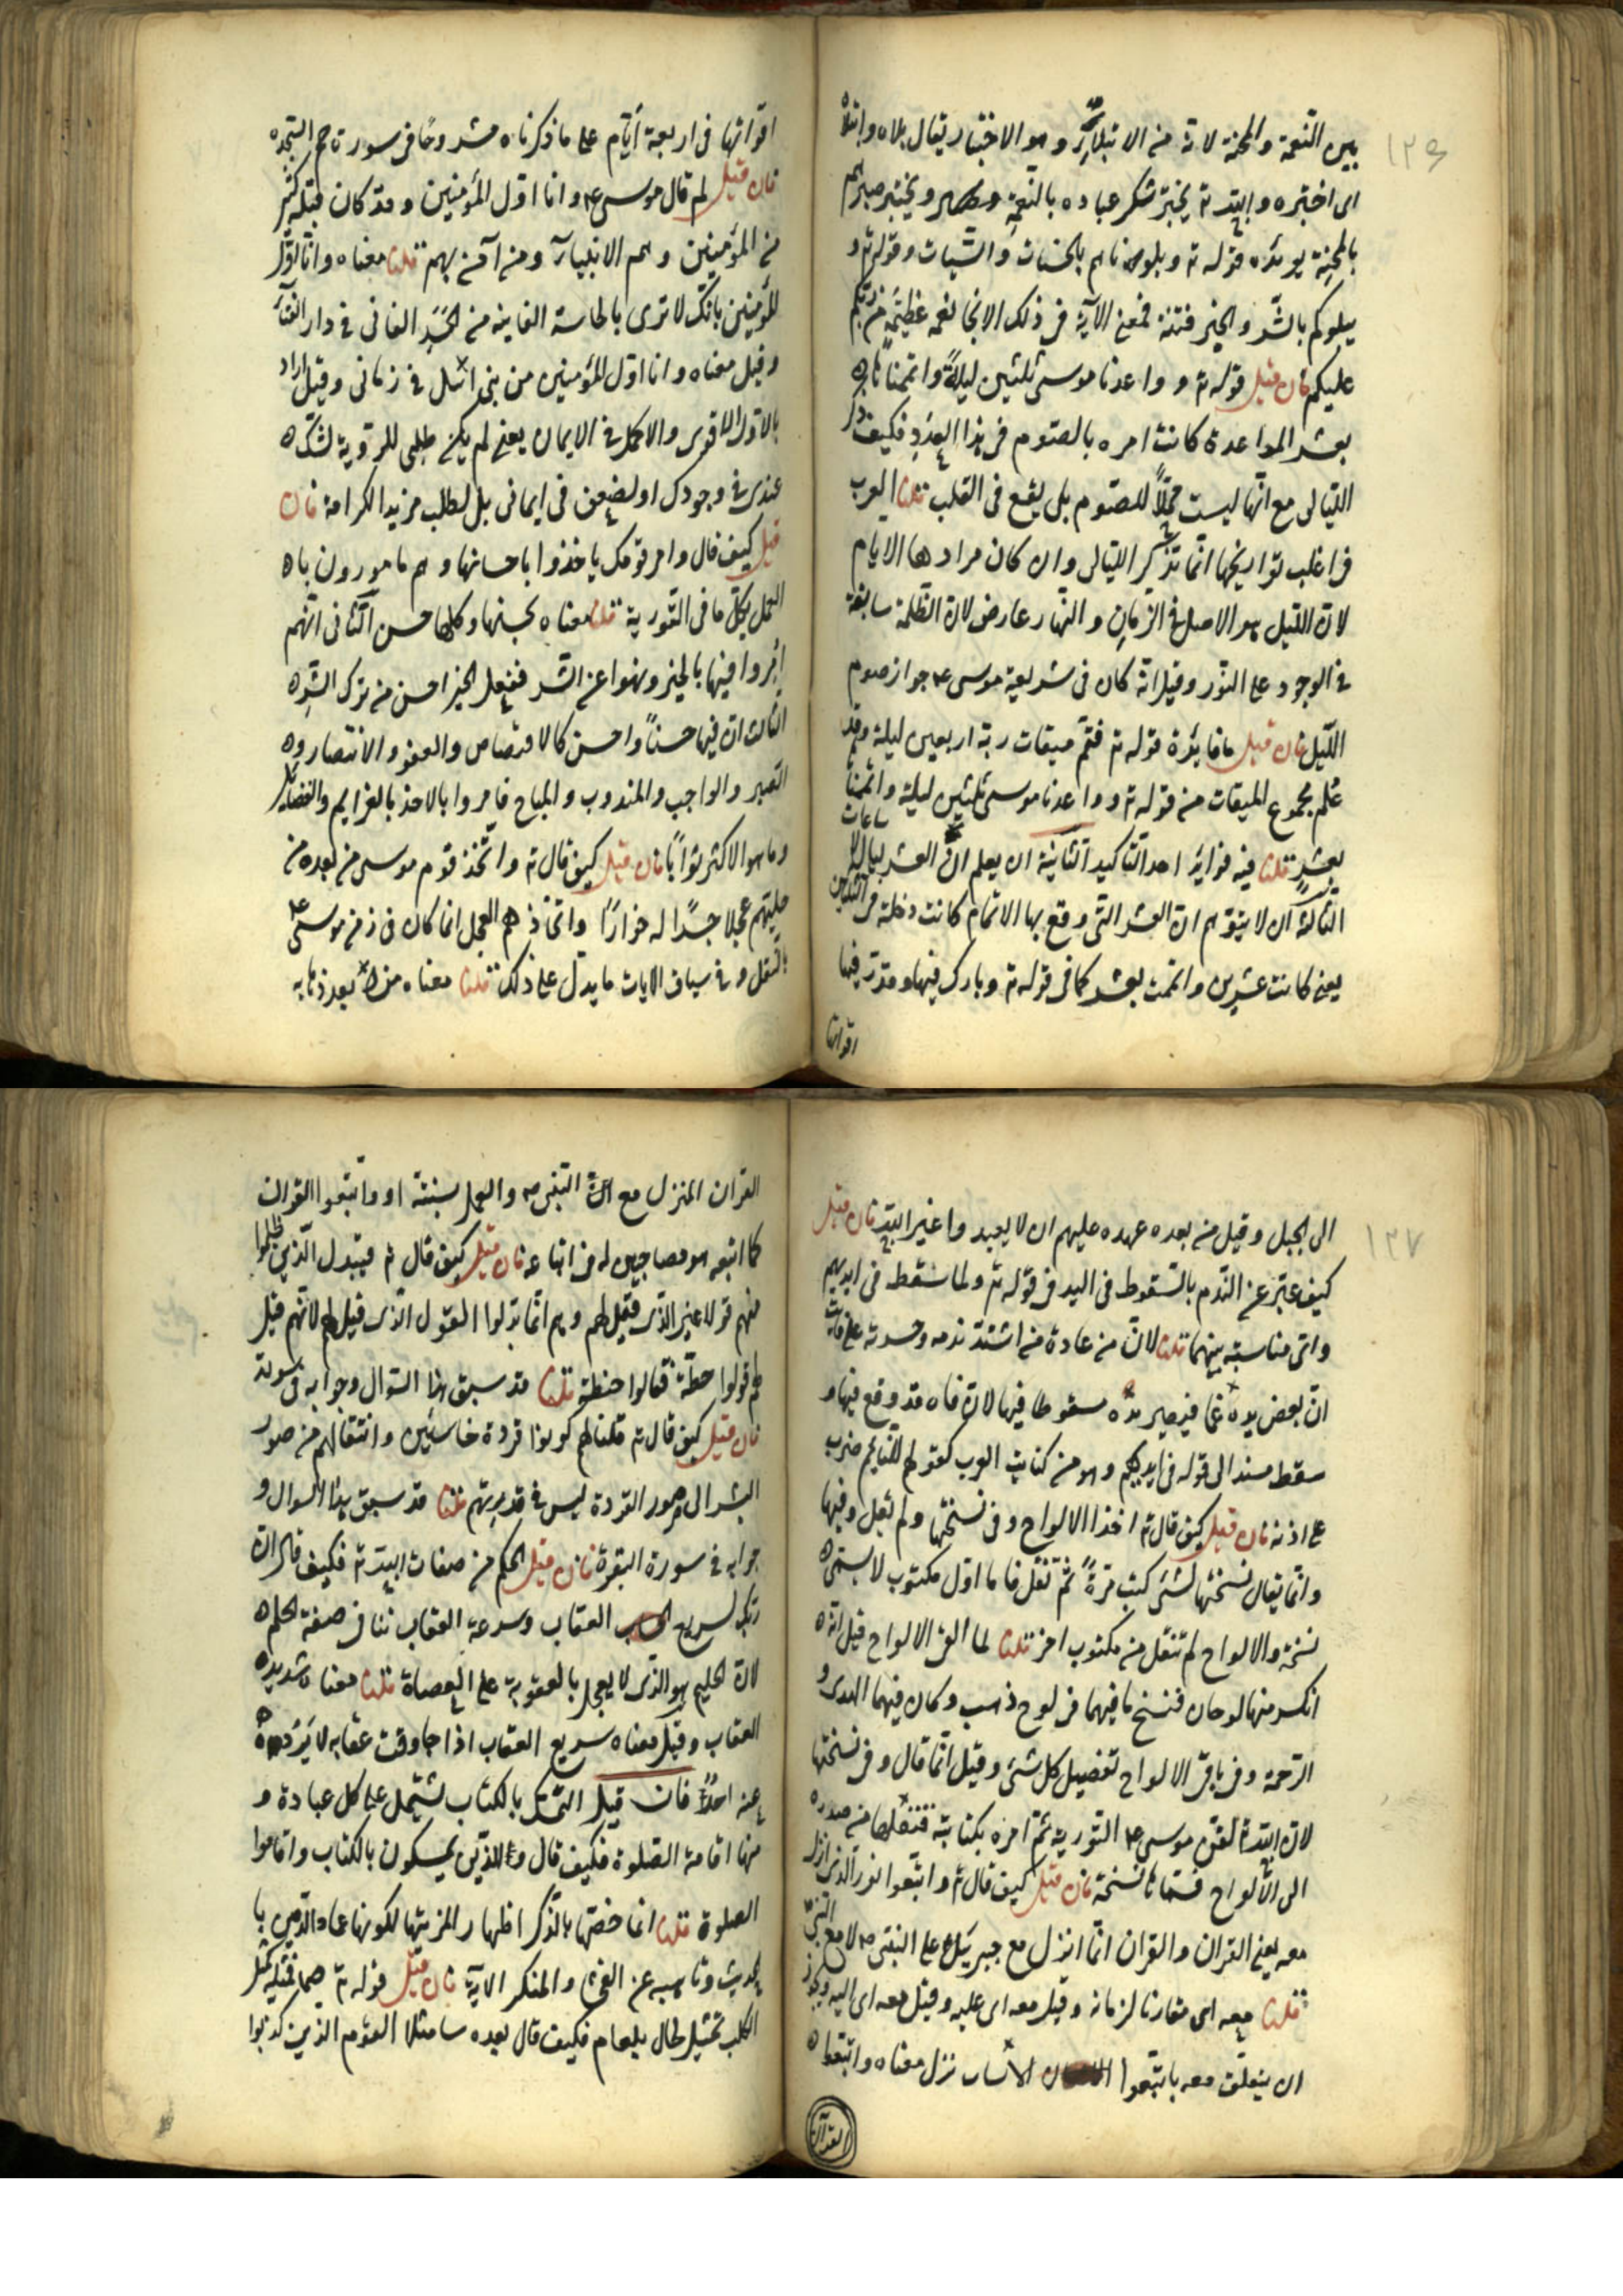 ١٣٦
بين النعمة والمحنة لانه من الابتلاء وهو الاختبار يقال بلاه وابتلاه
اى اختبره والله تع يختبر شكر عباده بالنعمة ويختبر صبرهم
بالمحنة يؤيده قوله تع وبلوناهم بالحسنات والسيات وقوله تع و
نبلوكم بالشر والخير فتنة فمعنى الآية فى ذلك الانجا نعمه عظيمة من ربكم
عليكم فان قيل قوله تع وواعدنا موسى ثلثين ليلةً واتممناها
بعشر المواعدة كانت امره بالصوم فى هذا العدد فكيف ذكر
الليالى مع انها ليست محلاً للصوم بل يقع فى القلب قلنا العرب
فى اغلب تواريخها انما تذكر الليالى وان كان مرادها الايام
لان الليل هو الاصل فى الزمان والنهار عارض لان الظلمة سابقة
فى الوجود على النور وقيل انه كان فى شريعة موسى ع م جواز صوم
الليل فان قيل ما فايدة قوله تع فتم ميقات ربه اربعين ليلة وقد
عُلم مجموع الميقات من قوله تع وواعدنا موسى ثلثين ليلة واتممناها
بعشرٍ قلنا فيه فوايد احد التاكيد الثانية ان يعلم ان العشر ليال لا ساعات
الثالثة ان لا يتوهم ان العشر التى وقع بها الاتمام كانت دخلة فى الثلثين
يعنى كانت عشرين واتمت بعشر كما فى قوله تع وبارك فيها وقدر فيها
اقواتها
اقواتها فى اربعة أيّام على ما ذكرناه مشروحًا فى سورة حم السجده
فان قيل لم قال موسى ع م وانا اول المؤمنين وقد كان قبله كثير
من المؤمنين وهم الانبياء ومن آمن بهم قلنا معناه وانا اول
المؤمنين بانك لا ترى بالحاسة الفانية من الجسد الفانى فى دار الفناء
وقيل معناه وانا اول المؤمنين من بنى اسرئل فى زمانى وقيل اراد
بالاول الاقوى والاكمل فى الايمان يعنى لم يكن طلبى للرؤية لشك
عندى فى وجودك او لضعف فى ايمانى بل لطلب مزيد الكرامة فان
قيل كيف قال وامر قومك ياخذوا باحسانها وهم مامورون با
لعمل بكل ما فى التورية قلنا معناه بحسنها وكلها حسن الثانى انهم
اُمروا فيها بالخير ونهوا عن الشر ففعل الخير احسن من ترك الشر
الثالث ان فيها حسنًا واحسن كالاقتصاص والعفو والانتصار و
الصبر والواجب والمندوب والمباح فامروا بالاخذ بالعزايم والفضايل
وما هو الاكثر ثوابًا فان قيل كيف قال تع واتخذ قوم موسى من بعده من
حليهم عجلا جسدًا له خوارًا واتخاذهم العجل انما كان فى زمن موسى ع م
بالنقل وفى سياق الايات ما يدل على ذلك قلنا معناه من بعد ذهابه
١٣٧
الى الجبل وقيل من بعده عهده عليهم ان لا يعبدوا غير الله فان قيل
كيف عبّر عن الندم بالسقوط فى اليد فى قوله تع ولما سقط فى ايديهم
واى مناسبة بينهما قلنا لان من عادة من اشتد ندمه وحسرته على فائت
ان يعض يده غما فيصير يده سقوطا فيها لان فاه قد وقع فيها و
سقط مسند الى قوله فى ايديهم وهو من كنايت العرب كقولهم للنايم ضرب
على اذنه فان قيل كيف قال تع اخذ الالواح وفى نسختها ولم يقل وفيها
وانما يقال نسختها لشئ كتب مرةً ثم نقل فاما اول مكتوب لا يسمى
نسخة والالواح لم تنقل من مكتوب اخر قلنا لما القى الالواح قيل انه
انكسر منها لوحان فنسخ ما فيهما فى لوح ذهب وكان فيهما الهدى و
الرحمة وفى باقى الالواح تفصيل كل شئ وقيل انما قال وفى نسختها
لان الله تع لقن موسى ع م التورية ثم امره بكتابته فنقلها من صدره
الى الألواح فسماها نسخة فان قيل كيف قال تع واتبعوا النور الذى انزل
معه يعنى القران والقران انما انزل مع جبريل ع على النبى ص م لا مع النبى
قلنا معه اى مقارنا لزمانه وقيل معه اى عليه وقيل معه اى اليه ويجوز
ان يتعلق معه باتبعوا نزل معناه واتبعوا
القرآن
القران المنزل مع النبى ص م والعمل بسنته او واتبعوا القران
كما اتبعه هو مصاحبين له فى اتباعه فان قيل كيف قال تع فبدل الذين ظلموا
منهم قولا غير الذى قيل لهم وهم انما بدلوا القول الذى قيل لهم لانهم قيل
لهم قولوا حطّة فقالوا حنطة قلنا قد سبق هذا السوال وجوابه فى سورة
فان قيل كيف قال تع قلنا لهم كونوا قردة خاسئين وانتقالهم من صور
البشر الى صور القردة ليس فى قدرتهم قلنا قد سبق هذا السوال و
جوابه فى سورة البقرة فان قيل الحكم من صفات الله تع فكيف قال ان
ربك لسريع العقاب وسرعة العقاب تنافى صفة الحلم
لان الحليم هو الذى لا يعجل بالعقوبة على العصاة قلنا معناه شديد
العقاب وقيل معناه سريع العقاب اذا جا وقت عقابه لا يَرُده
عنه احدٌ فان قيل التمسك بالكتاب يشتمل على كل عبادة و
منها اقامة الصلوة فكيف قال والذين يمسكون بالكتاب واقاموا
الصلوة قلنا انما خصتها بالذكر اظهار المزيتها لكونها عماد الدين با
لحديث وناهيه عن الفحشا والمنكر الاية فان قيل قوله تع فمثله كمثل
الكلب تمثيل لحال بلعام فكيف قال بعده سا مثلا القوم الذين كذبوا